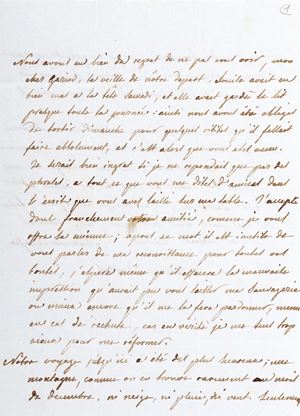 Nous avons eu bien du regret de ne pas vous voir, mon
cher la veille de nôtre depart. Emile avait eu
bien mal a la tête Samedi, et elle avait gardé le lit
presque toute la journée; ainsi nous avons été obligés
de sortir Dimanche pour quelques visites qu'il fallait
faire absolument, et c'est alors que vous etes venu.
Je serais bien ingrat si je ne repondais que par des
phrases, a tout ce que vous me dites d'amical dans
le écrite que vous avez laissé sur ma table. J'accepte
donc franchement votre amitié, comme je vous
offre la mienne; après ce mot il est inutile de
vous parler de ma reconnaissance pour toutes vos
bontés, j'espère même qu'il effacera la mauvaise
impression qu'aurait pu vous laisser ma Sauvagerie
ou mieux encore qu'il me la fera pardonner, même
en cas de rechute, car en verité je me sens trop
vieux pour me réformer.
Notre voyage jusqu'ici a été des plus heureux; une
montagne, comme on en trouve rarement au mois
de decembre, ni neige, ni pluie, du vent seulement